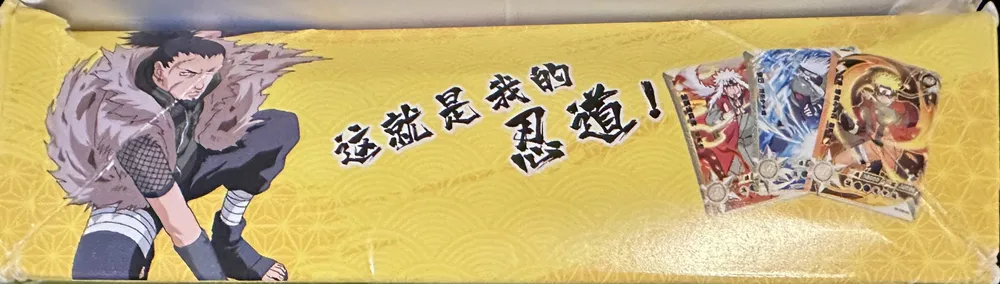 这就是我的
忍道！